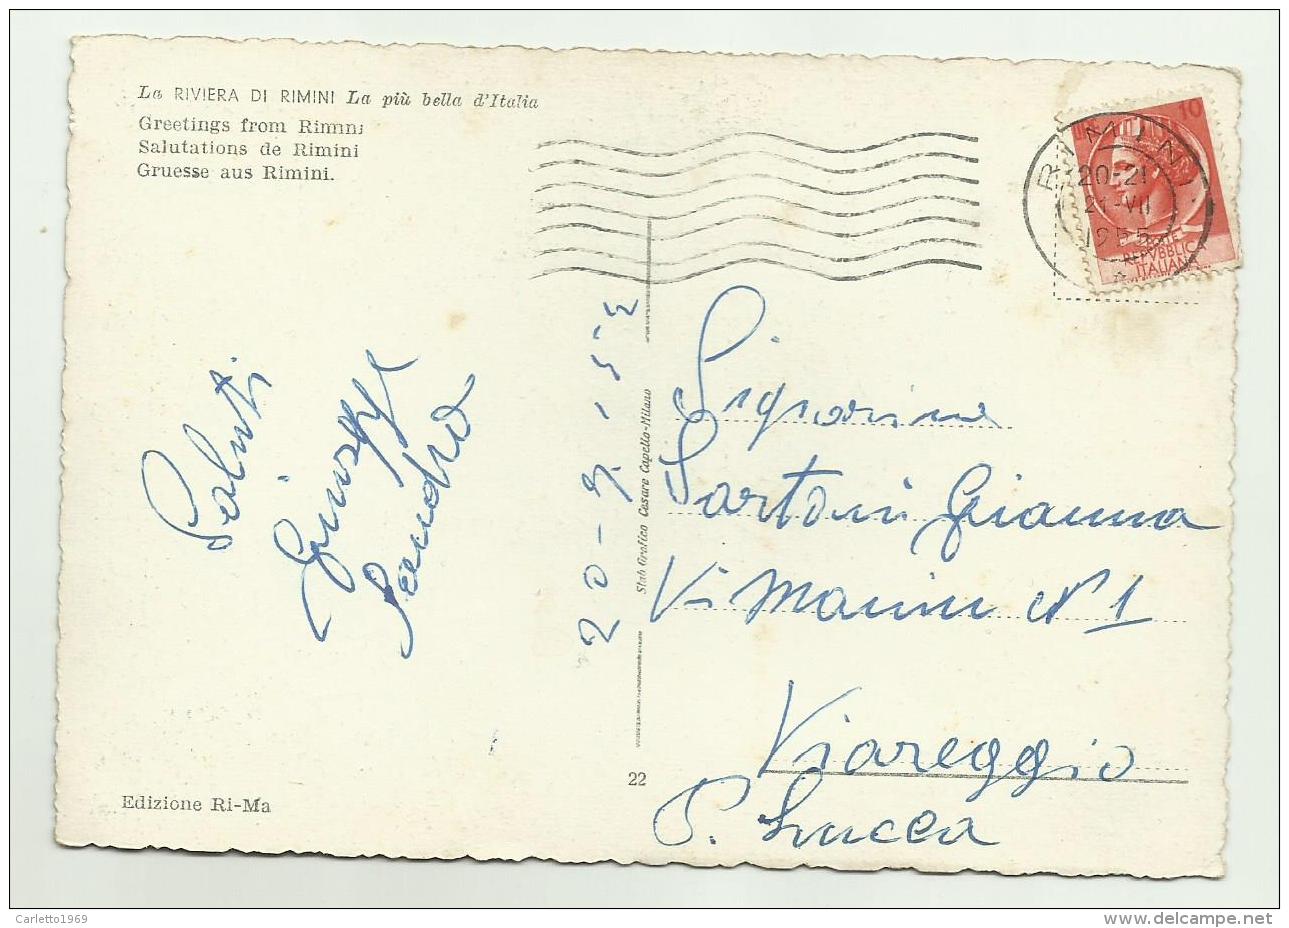 La RIVIERA DI RIMINI La più bella d'Italia
Greetings from Rimini
Salutations de Rimini
Gruesse aus Rimini.
RIMINI
20-21
21-VII
1955
LIRE 10
POSTE
REPVBBLICA
ITALIANA
Saluti
Giuseppe
Sandra
20-7-55
Stab Grafico Cesare Capello-Milano
Signorina
Sartori Gianna
Via Marini N° 1
Viareggio
P. Lucca
22
Edizione Ri-Ma
Carletto1969
delcampe.net